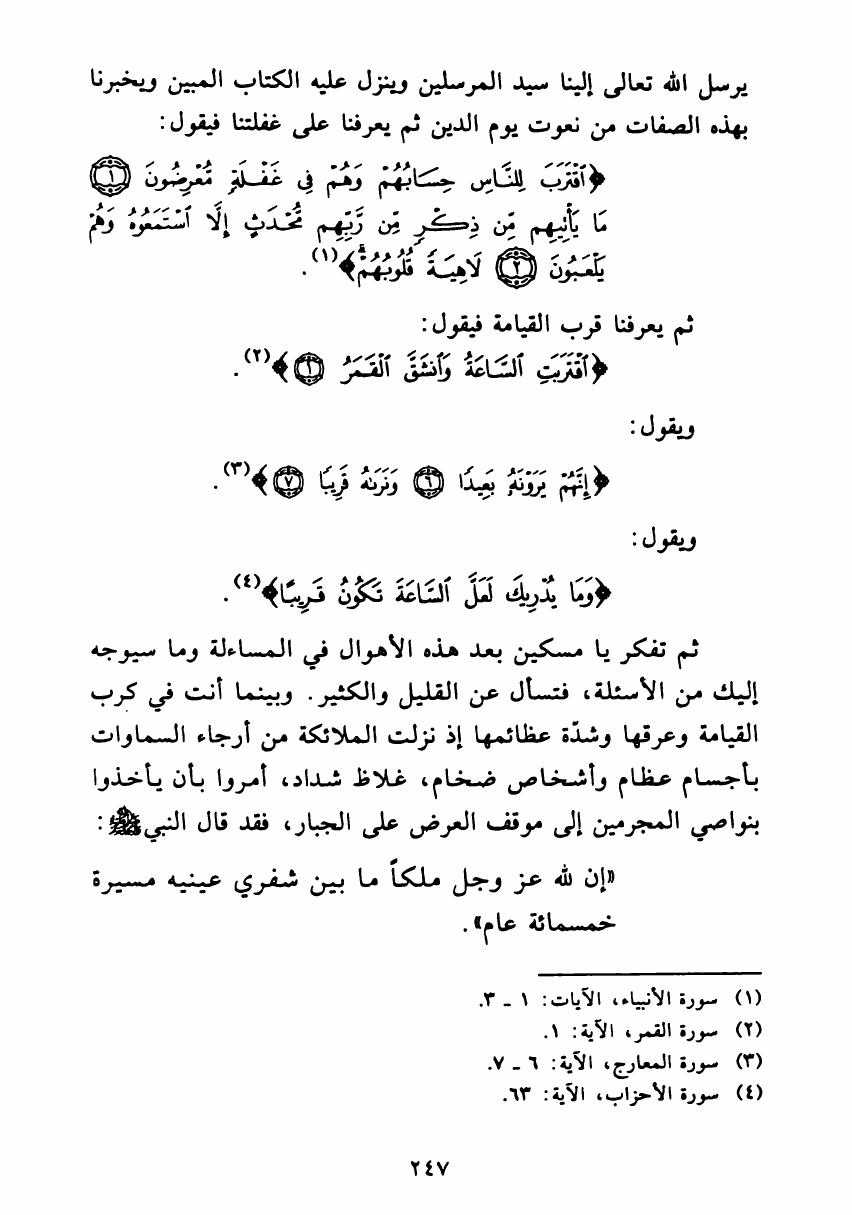 يرسل الله تعالى إلينا سيد المرسلين وينزل عليه الكتاب المبين ويخبرنا
بهذه الصفات من نعوت يوم الدين ثم يعرفنا على غفلتنا فيقول:
﴿ٱقْتَرَبَ لِلنَّاسِ حِسَابُهُمْ وَهُمْ فِى غَفْلَةٍ مُّعْرِضُونَ ١
مَا يَأْنِيهِم مِّن ذِكْرٍ مِّن رَّبِّهِم مُّحْدَثٍ إِلَّا ٱسْتَمَعُوهُ وَهُمْ
يَلْعَبُونَ ٢ لَاهِيَةً قُلُوبُهُمْ﴾(١).
ثم يعرفنا قرب القيامة فيقول:
﴿ٱقْتَرَبَتِ ٱلسَّاعَةُ وَٱنشَقَّ ٱلْقَمَرُ ١﴾(٢).
ويقول:
﴿إِنَّهُمْ يَرَوْنَهُۥ بَعِيدًا ٦ وَنَرَىٰهُ قَرِيبًا ٧﴾(٣).
ويقول:
﴿وَمَا يُدْرِيكَ لَعَلَّ ٱلسَّاعَةَ تَكُونُ قَرِيبًا﴾(٤).
ثم تفكر يا مسكين بعد هذه الأهوال في المساءلة وما سيوجه
إليك من الأسئلة، فتسأل عن القليل والكثير. وبينما أنت في كرب
القيامة وعرقها وشدّة عظائمها إذ نزلت الملائكة من أرجاء السماوات
بأجسام عظام وأشخاص ضخام، غلاظ شداد، أمروا بأن يأخذوا
بنواصي المجرمين إلى موقف العرض على الجبار، فقد قال النبي ﷺ:
«إن لله عز وجل ملكاً ما بين شفري عينيه مسيرة
خمسمائة عام».
(١) سورة الأنبياء، الآيات: ١ ـ ٣.
(٢) سورة القمر، الآية: ١.
(٣) سورة المعارج، الآية: ٦ ـ ٧.
(٤) سورة الأحزاب، الآية: ٦٣.
٢٤٧